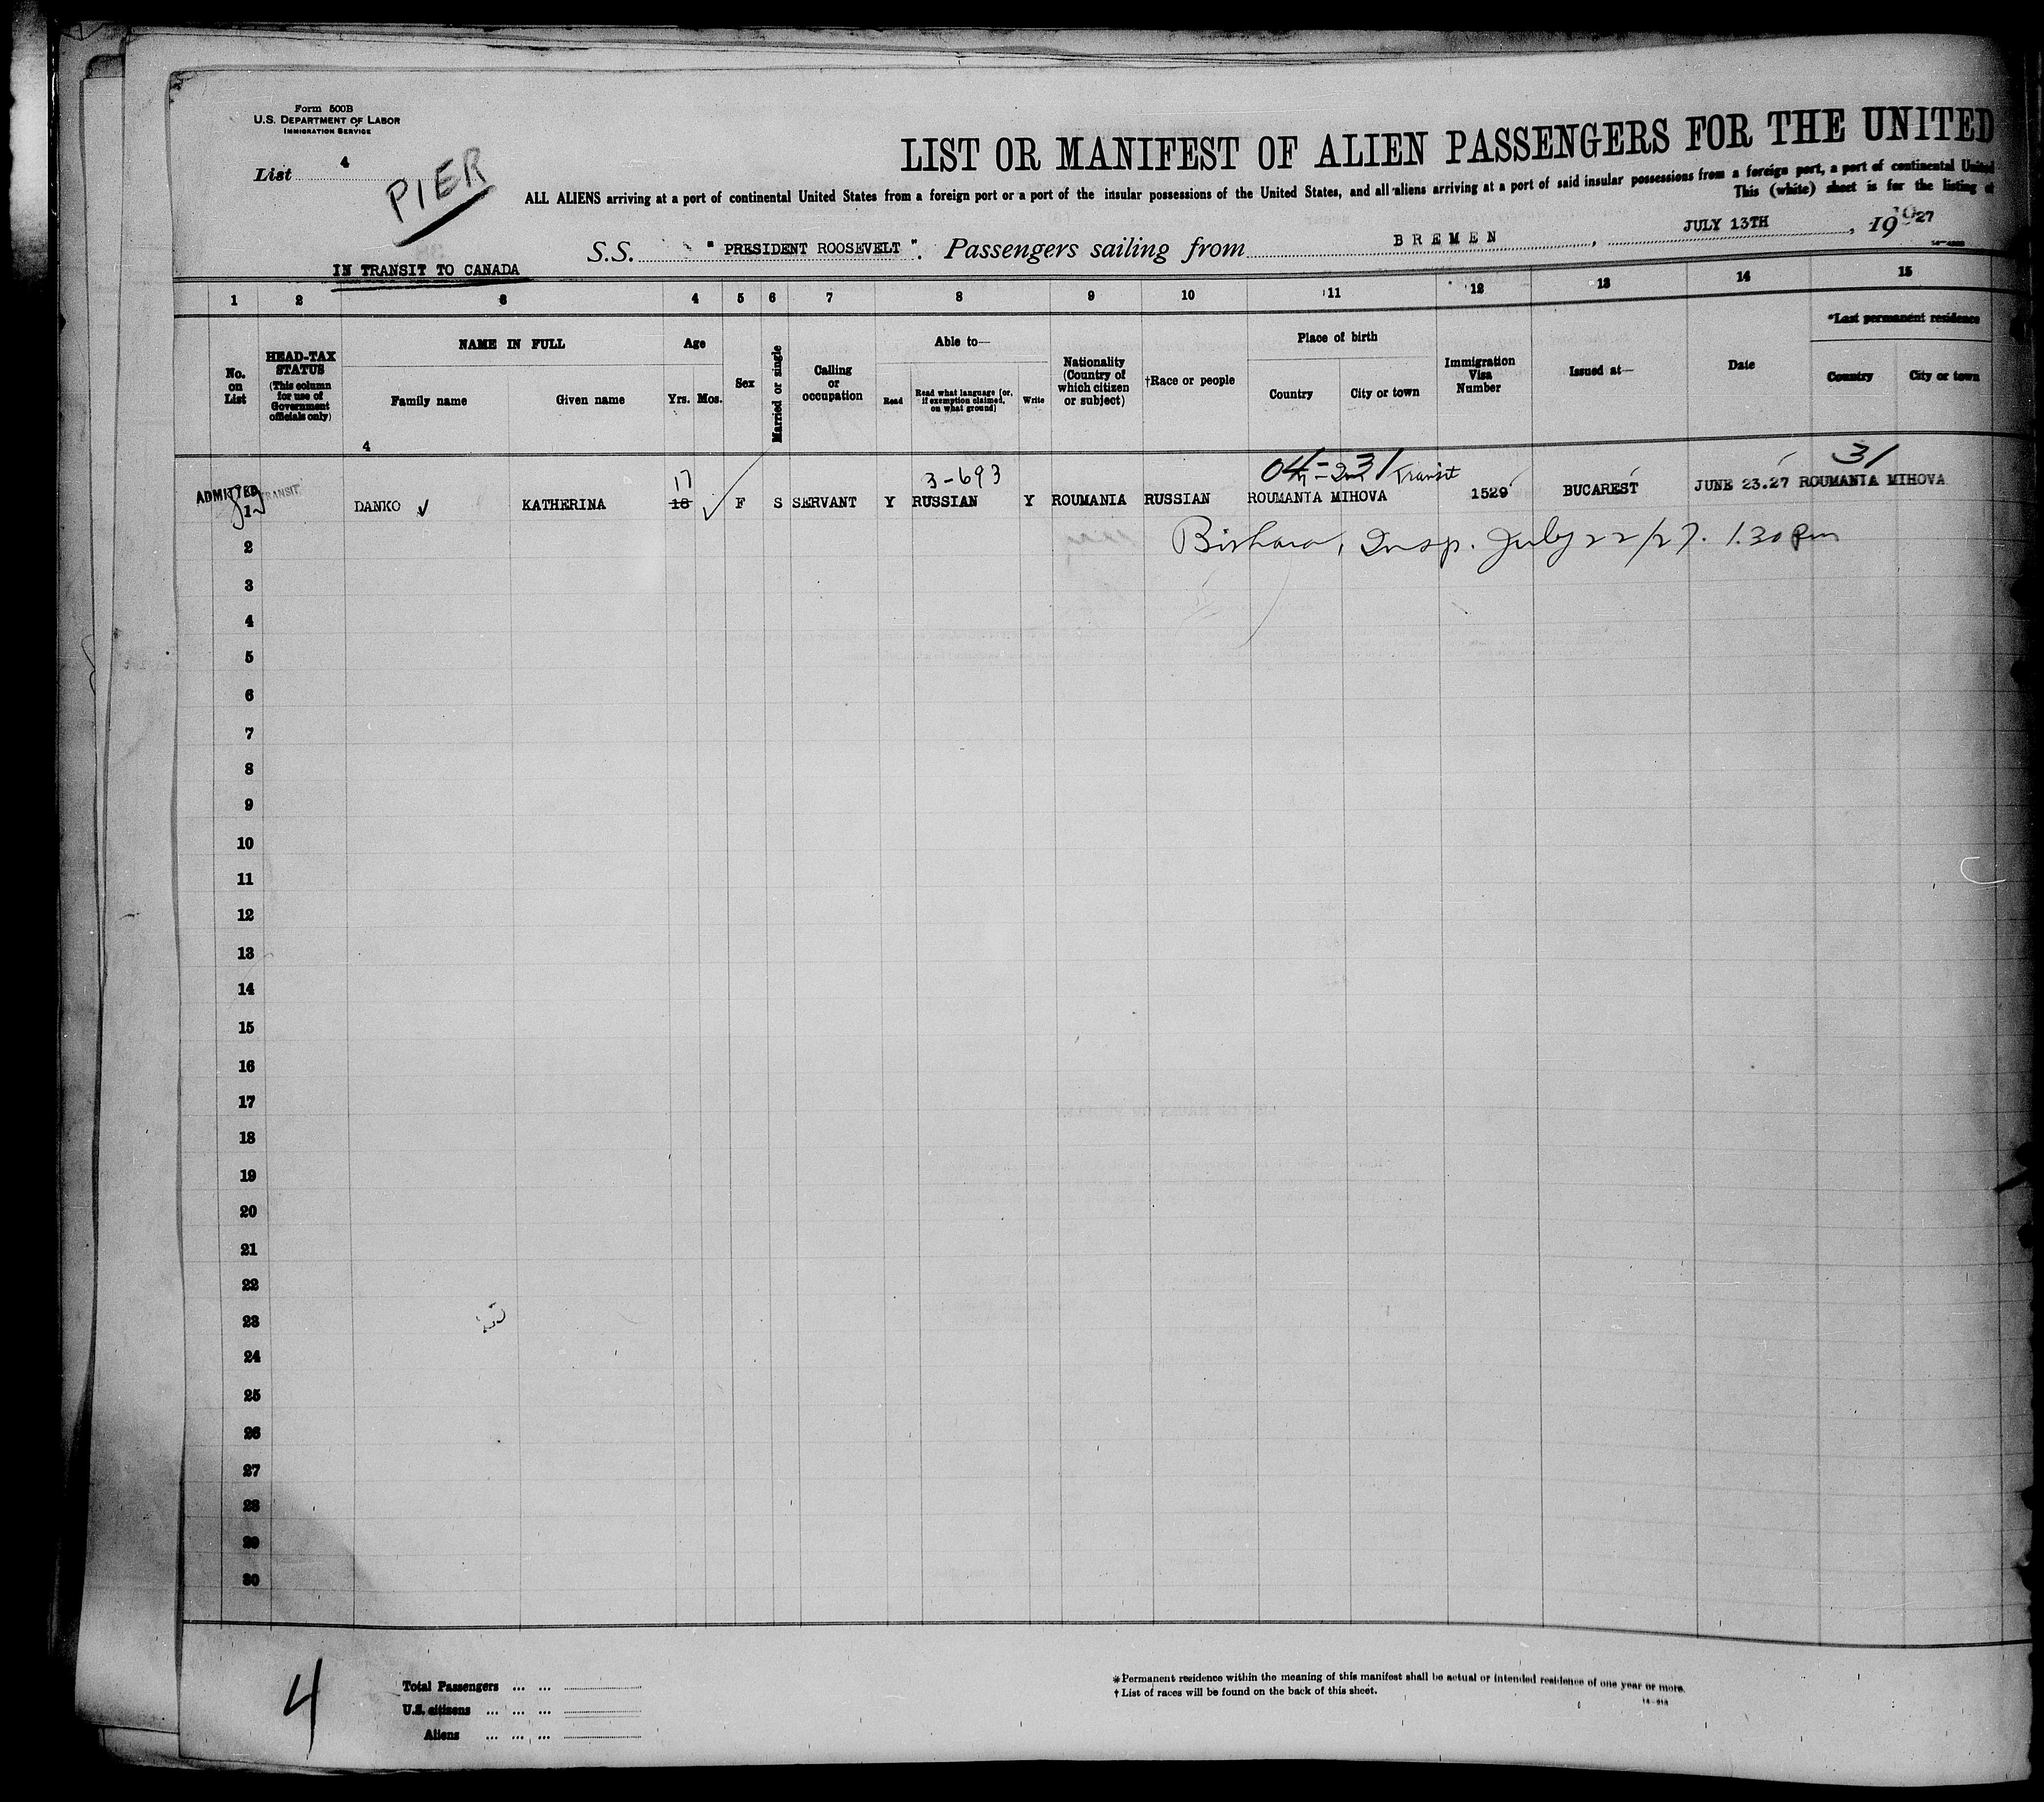 Form 500B
U.S. DEPARTMENT OF LABOR
IMMIGRATION SERVICE
List 4
PIER
LIST OR MANIFEST OF ALIEN PASSENGERS FOR THE UNITED
ALL ALIENS arriving at a port of continental United States from a foreign port or a port of the insular possessions of the United States, and all aliens arriving at a port of said insular possessions from a foreign port, a port of continental United
This (white) sheet is for the listing of
S.S. " PRESIDENT ROOSEVELT ". Passengers sailing from BREMEN, JULY 13TH, 1927
IN TRANSIT TO CANADA
1 2 3 4 5 6 7 8 9 10 11 12 13 14 15
No. on List
HEAD-TAX STATUS (This column for use of Government officials only)
NAME IN FULL
Family name
Given name
Age
Yrs. Mos.
Sex
Married or single
Calling or occupation
Able to—
Read
Read what language [or, if exemption claimed, on what ground]
Write
Nationality (Country of which citizen or subject)
†Race or people
Place of birth
Country
City or town
Immigration Visa Number
Issued at—
Date
*Last permanent residence
Country
City or town
4
17 3-693 Transit 31
ADMITTED TRANSIT
1 DANKO KATHERINA 18 F S SERVANT Y RUSSIAN Y ROUMANIA RUSSIAN ROUMANIA MIHOVA 1529 BUCAREST JUNE 23.27 ROUMANIA MIHOVA
2 Insp. July 22/27. 1.30 Pm
3
4
5
6
7
8
9
10
11
12
13
14
15
16
17
18
19
20
21
22
23
24
25
26
27
28
29
30
4
Total Passengers
U.S. citizens
Aliens
*Permanent residence within the meaning of this manifest shall be actual or intended residence of one year or more.
†List of races will be found on the back of this sheet.